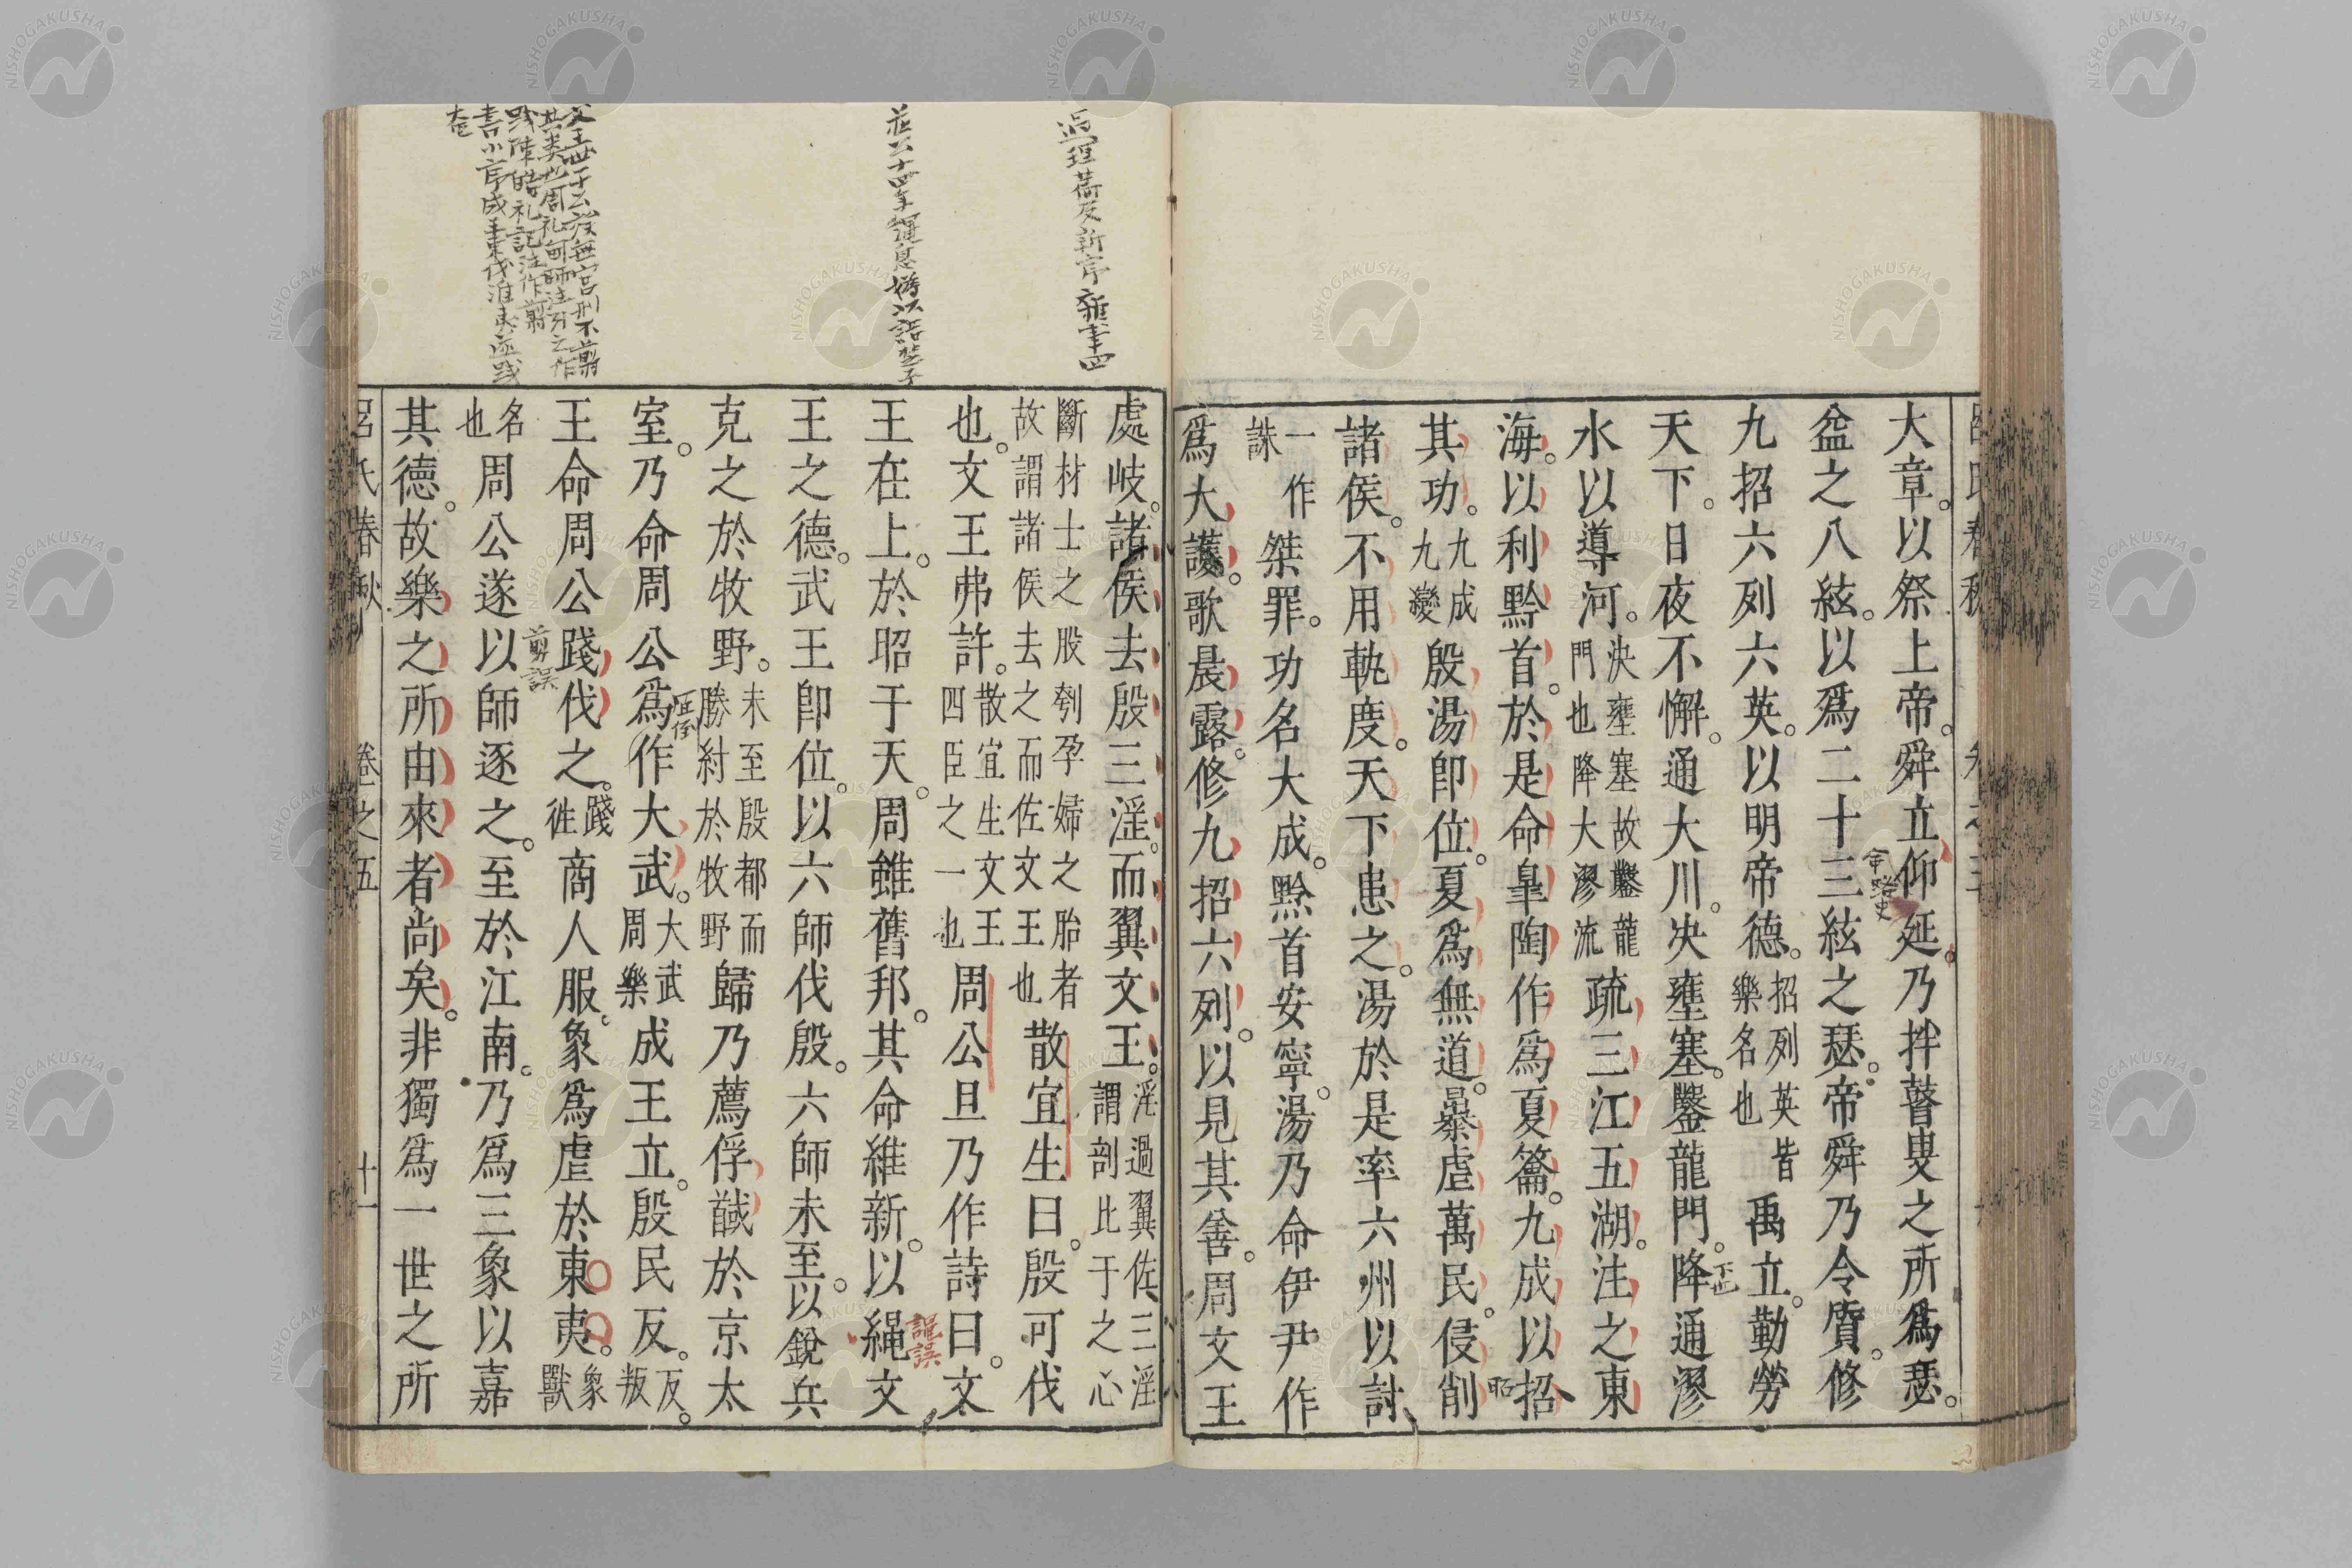 大章。以祭上帝。舜立仰延乃拌瞽叟之所爲瑟。
益之八絃。以爲二十三絃之瑟。帝舜乃令質。修
九招六列六英。以明帝德。招列英皆樂名也禹立。勤勞
天下。日夜不懈。通大川。決壅塞。鑿龍門。降通漻
水以導河。決壅塞故鑿龍門也降大漻流疏三江五湖。注之東
海。以利黔首。於是命臯陶作爲夏籥。九成以招
其功。九成九變殷湯卽位。夏爲無道。暴虐萬民。侵削
諸侯。不用軌度。天下患之。湯於是率六州以討
一作誅桀罪。功名大成。黔首安寧。湯乃命伊尹作
爲大護。歌晨露。修九招六列。以見其善。周文王
處岐。諸侯去殷三淫。而翼文王。淫過翼佐三淫謂剖比干之心
斷材士之股刳孕婦之胎者故謂諸侯去之而佐文王也散宜生曰。殷可伐
也。文王弗許。散宜生文王四臣之一也周公旦乃作詩曰。文
王在上。於昭于天。周雖舊邦。其命維新。以繩文
王之德。武王卽位。以六師伐殷。六師未至。以銳兵
克之於牧野。未至殷都而勝紂於牧野歸乃薦俘馘於京太
室。乃命周公爲作大武。大武周樂成王立。殷民反。反叛
王命周公踐伐之。踐徃商人服。象爲虐於東夷。象獸
名也周公遂以師逐之。至於江南。乃爲三象以嘉
其德。故樂之所由來者尚矣。非獨爲一世之所
呂氏春秋
卷之五
十一
莊公十四年繩息嬀以語楚子
剪誤
謹誤
NISHOGAKUSHA